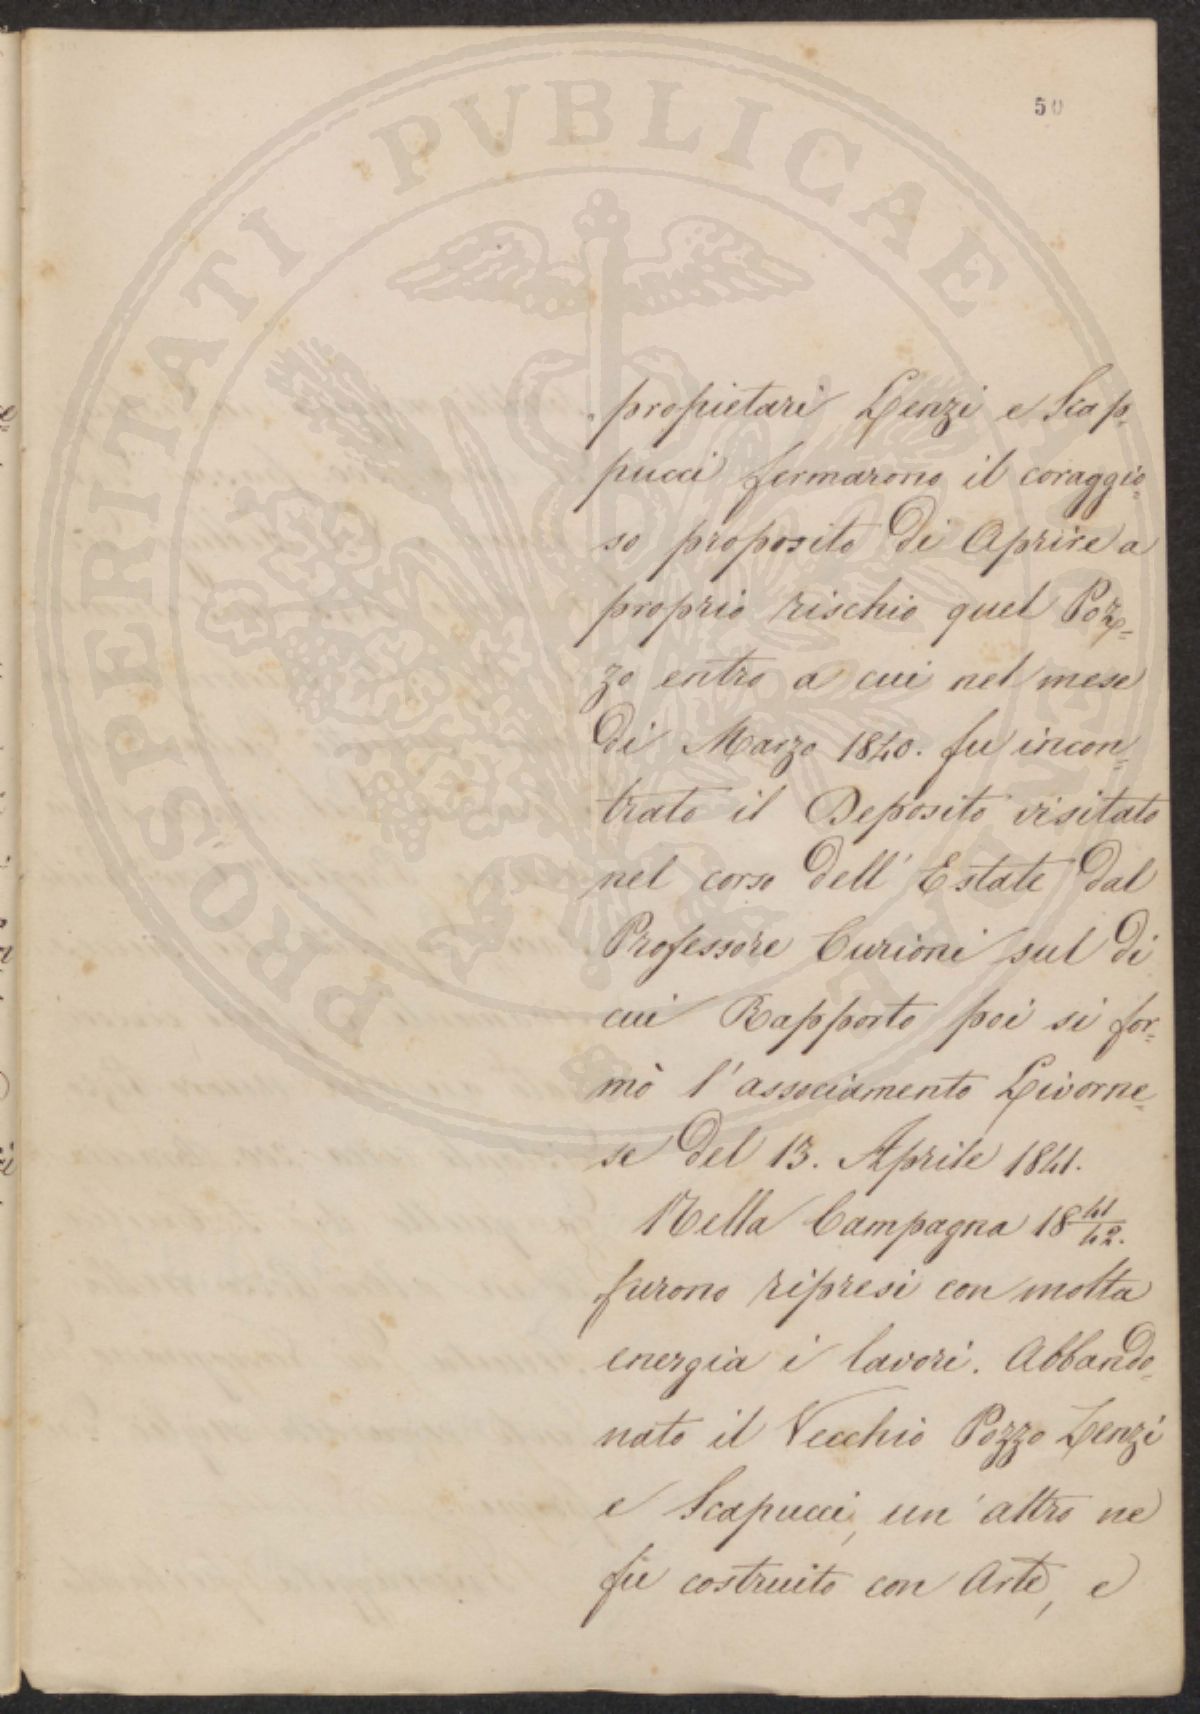 50
PROSPERITATI PVBLICAE
propietari Lenzi e Scap=
pucci fermarono il coraggio=
so proposito di Aprire a
proprio rischio quel Poz=
zo entro a cui nel mese
di Marzo 1840. fu incon=
trato il Deposito visitato
nel corso dell' Estate dal
Professore Curioni sul di
cui Rapporto poi si for=
mò l'associamento Livorne=
se del 13. Aprile 1841.
Nella Campagna 18 41/42.
furono ripresi con molta
energia i lavori. Abbando=
nato il Vecchio Pozzo Lenzi
e Scapucci, un'altro ne
fu costruito con Arte, e